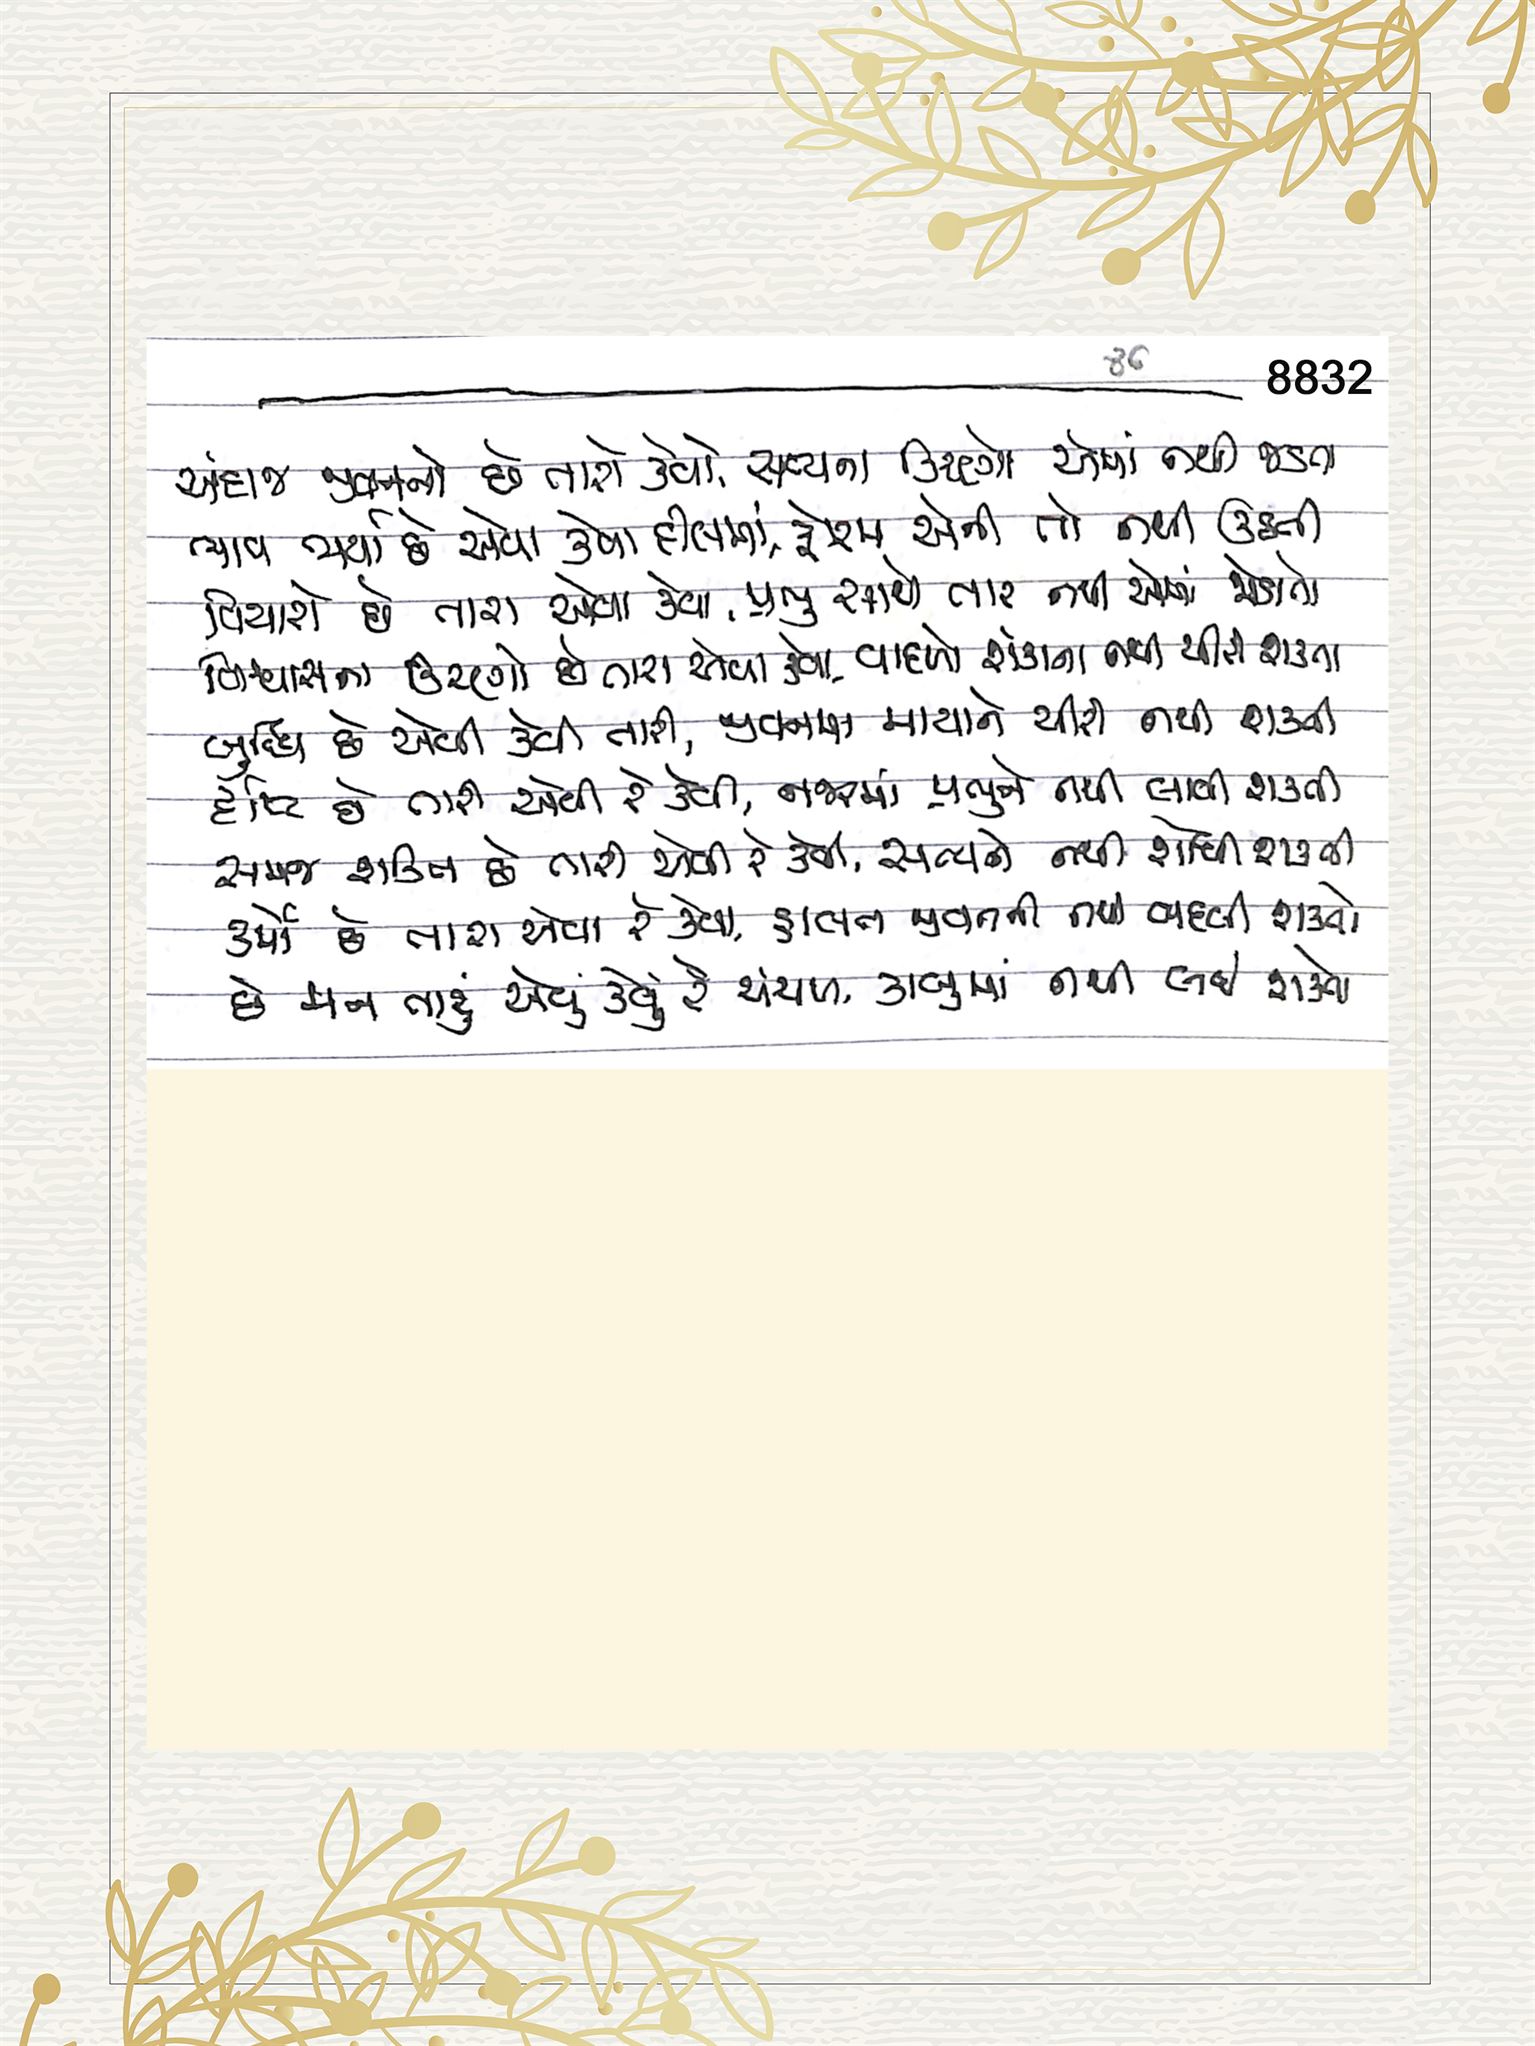 ૪૯
8832
અંદાજ જીવનનો છે તારો કેવો, સત્યના કિરણો એમાં નથી જડતા
ભાવ ભર્યા છે એવા કેવા દીલમાં, ફોરમ એની તો નથી ઉઠતી
વિચારો છે તારા એવા કેવા, પ્રભુ સાથે તાર નથી એમાં જોડાતો
વિશ્વાસના કિરણો છે તારા એવા કેવા, વાદળો શંકાના નથી ચીરી શકતા
બુધ્ધિ છે એવી કેવી તારી, જીવનમાં માયાને ચીરી નથી શકતી
દૃષ્ટિ છે તારી એવી રે કેવી, નજરમાં પ્રભુને નથી લાવી શકતી
સમજ શક્તિ છે તારી એવી રે કેવી, સત્યને નથી શોધી શકતી
કર્મો છે તારા એવા રે કેવા, હાલત જીવનની નથી બદલી શકતો
છે મન તારું એવું કેવું રે ચંચળ, કાબુમાં નથી લઈ શકતો